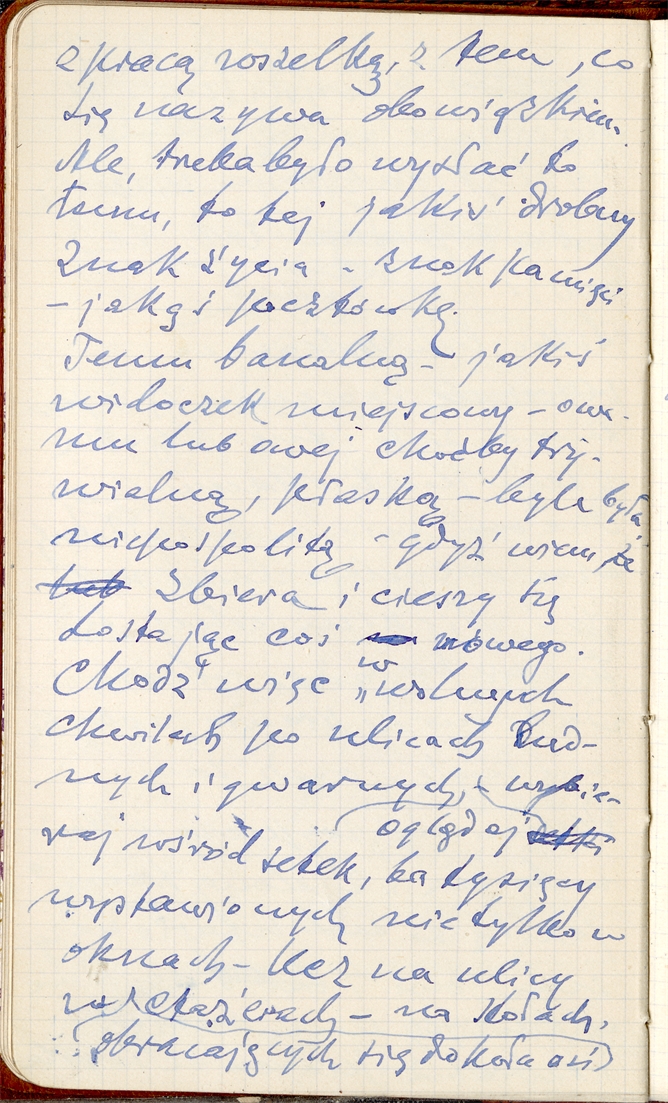 z pracą wszelką, z tem, co
się nazywa obowiązkiem.
Ale, trzeba było wysłać to
temu, to tej jakiś drobny
znak życia – znak pamięci
– jakąś pocztówkę.
Temu banalną – jakiś
widoczek miejscowy – owe-
mu lub owej choćby try-
wialną, płaską – byle była
niepospolitą – gdyż wiem, że
lub zbiera i cieszy się
dostając coś nowego.
Chodź więc w „wolnych
chwilach po ulicach lud-
nych i gwarnych, – wybie-
oglądaj setki
raj wśród setek, ba tysięcy
wystawionych nie tylko w
oknach – lecz na ulicy
w etażerach – na kołach,
obracających się dokoła osi